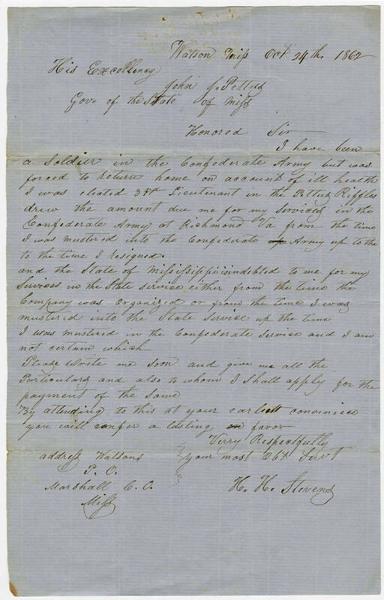 Watson Miss Oct. 24th. 1862
His Excellency
John J. Pettus
Gov. of the State of Miss
Honored Sir
I have been
a Soldier in the Confederate Army but was
forced to return home on account of ill health
I was elected 3rd Lieutenant in the Pettus Riffles
drew the amount due me for my Services in the
Confederate Army at Richmond Va from the time
I was mustered into the Confederate Army up to the
to the time I resigned.
and the State of Mississippi is indebted to me for my
Survices in the State service either from the time the
Company was Organized or from the time I was
mustered into the State Servise up the time
I was mustered in the Confederate Servise and I am
not certain which
Please Write me soon and give me all the
Particulars and also to whom I Shall apply for the
payment of the same
By attending to this at your earliest
you will confer a favor
Verry Respectfully
address Watsons your most Obt Servt
P. O.
Marshall C.O. H. H. Stevens
Miss